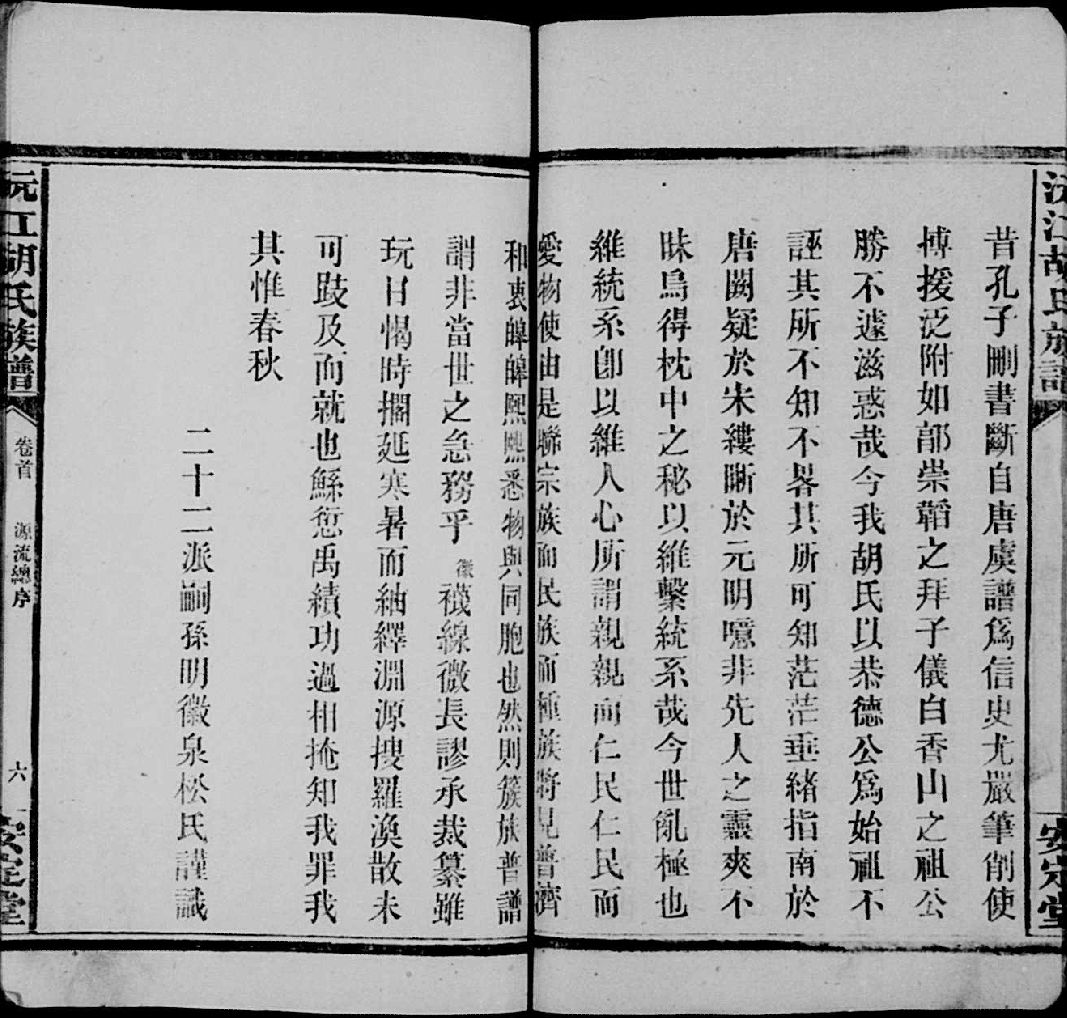 沅江胡氏族譜
安定堂
昔孔子刪書斷自唐虞譜爲信史尤嚴筆削使
搏援泛附如郭崇韜之拜子儀白香山之祖公
勝不遽滋惑哉今我胡氏以恭德公爲始祖不
誣其所不知不畧其所可知茫茫垂緒指南於
唐闕疑於宋縷晰於元明噫非先人之靈爽不
昧烏得枕中之秘以維繫統系哉今世亂極也
維統系卽以維人心所謂親親而仁民仁民而
愛物使由是聯宗族而民族而種族將見普濟
和衷皞皞熙熙悉物與同胞也然則簇族普譜
謂非當世之急務乎徽襪線微長謬承裁纂雖
玩日愒時擱延寒暑而紬繹淵源搜羅渙散未
可跂及而就也鯀愆禹績功過相掩知我罪我
其惟春秋
二十二派嗣孫明徽泉松氏謹識
沅江胡氏族譜
卷首
源流總序
六
安定堂